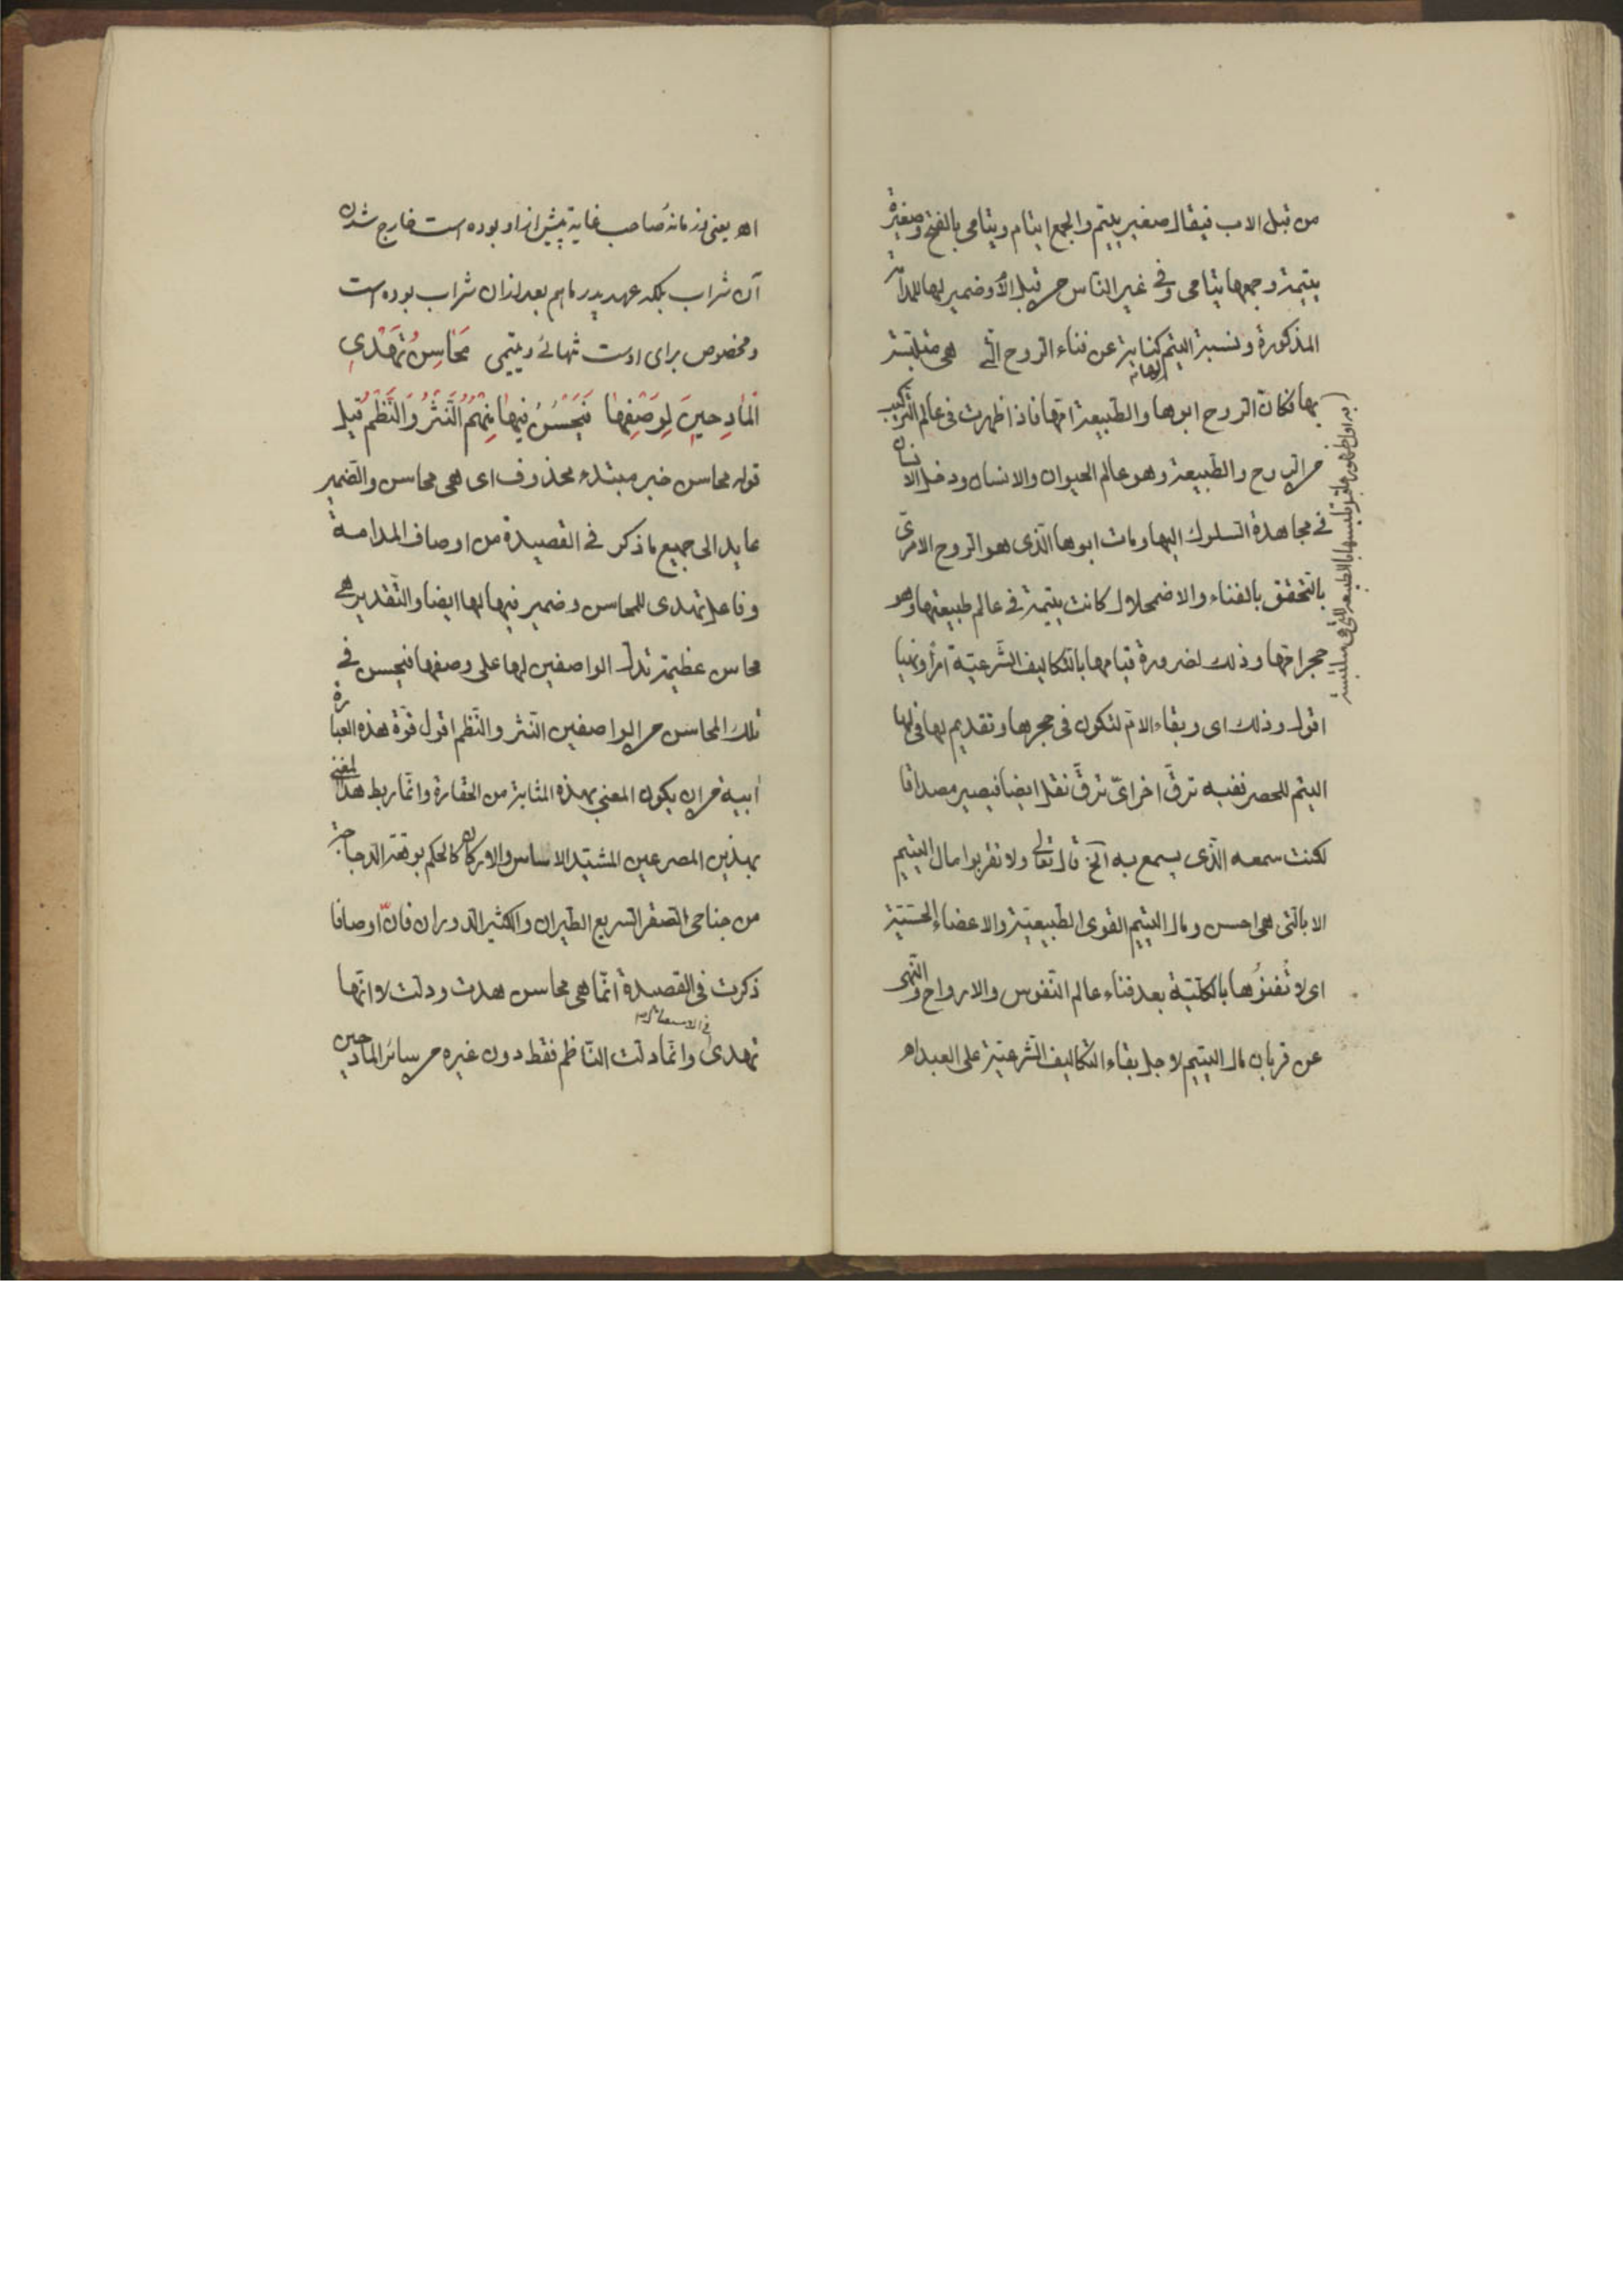 من قبل الاب فيقال صغير يتيم والجمع ايتام ويتامى بالفتح وصغيرة
يتيمة وجمعها يتامى وفى غير الناس من قبل الأم وضمير لها للمدامة
المذكورة ونسبة اليتم كناية عن فناء الروح التى هى متلبسة
بها فكان الروح ابوها والطبيعة امّها فاذا ظهرت فى عالم التركيب
من الروح والطبيعة وهو عالم الحيوان والانسان ودخل الانسان
فى مجاهدة السلوك اليها ومات ابوها الّذى هو الروح الامرىّ
بالتّحقّق بالفناء والاضمحلال كانت يتيمة فى عالم طبيعتها وهو
حجر امّها وذلك لضرورة قيامها بالتكاليف الشّرعيّة امرًا ونهيا
اقول وذلك اى وبقاء الامّ لتكون فى حجرها وتقديم لها فى لها
اليتم للحصر ففيه ترقّ اخر اىّ ترقّ نقل ايضا فيصير مصداقا
لكنت سمعه الّذى يسمع به الخ قال تعالى ولا تقربوا مال اليتيم
الا بالتى هى احسن ومال اليتيم القوى الطّبيعيّة والاعضاء الحسّيّة
اى لا تُفنوُها بالكلّيّة بعد فناء عالم النّفوس والارواح والنّهى
عن قربان مال اليتيم لاجل بقاء التكاليف الشّرعيّة على العبد اهـ
اهـ يعنى در زمانهٔ صاحب غاية پيش از او بوده است خارج شدن
آن شراب بلكه عهد پدر ما هم بعد از ان شراب بوده است
ومخصوص براى اوست تنهائى ويتيمى مَحَاسِنُ تَهْدِى
الْمَادِحِينَ لِوَصْفِهَا فَيَحْسُنُ فِيهَا مِنْهُمُ النَّثْرُ وَالنَّظْمُ قيل
قوله محاسن خبر مبتداء محذوف اى هى محاسن والضّمير
عايد الى جميع ما ذكر فى القصيدة من اوصاف المدامة
وفاعل تهدى للمحاسن وضمير فيها لها ايضا والتّقدير هى
محاسن عظيمة تدل الواصفين لها على وصفها فيحسن فى
تلك المحاسن من الواصفين النّثر والنّظم اقول قوّة هذه العبارة
ابية من ان يكون المعنى بهذه المثابة من الحقارة وانّما ربط هذا المعنى
بهذين المصرعين المشيّد الاساس والاركان كالحكم بوقفة الدجاجة
من جناحى الصّقر السريع الطيران والكثير الدوران فانّ اوصافا
ذكرت فى القصيدة انّما هى محاسن هدت ودلت لا انّها
تهدى وانّما دلت النّاظم فقط دون غيره من سائر المادحين